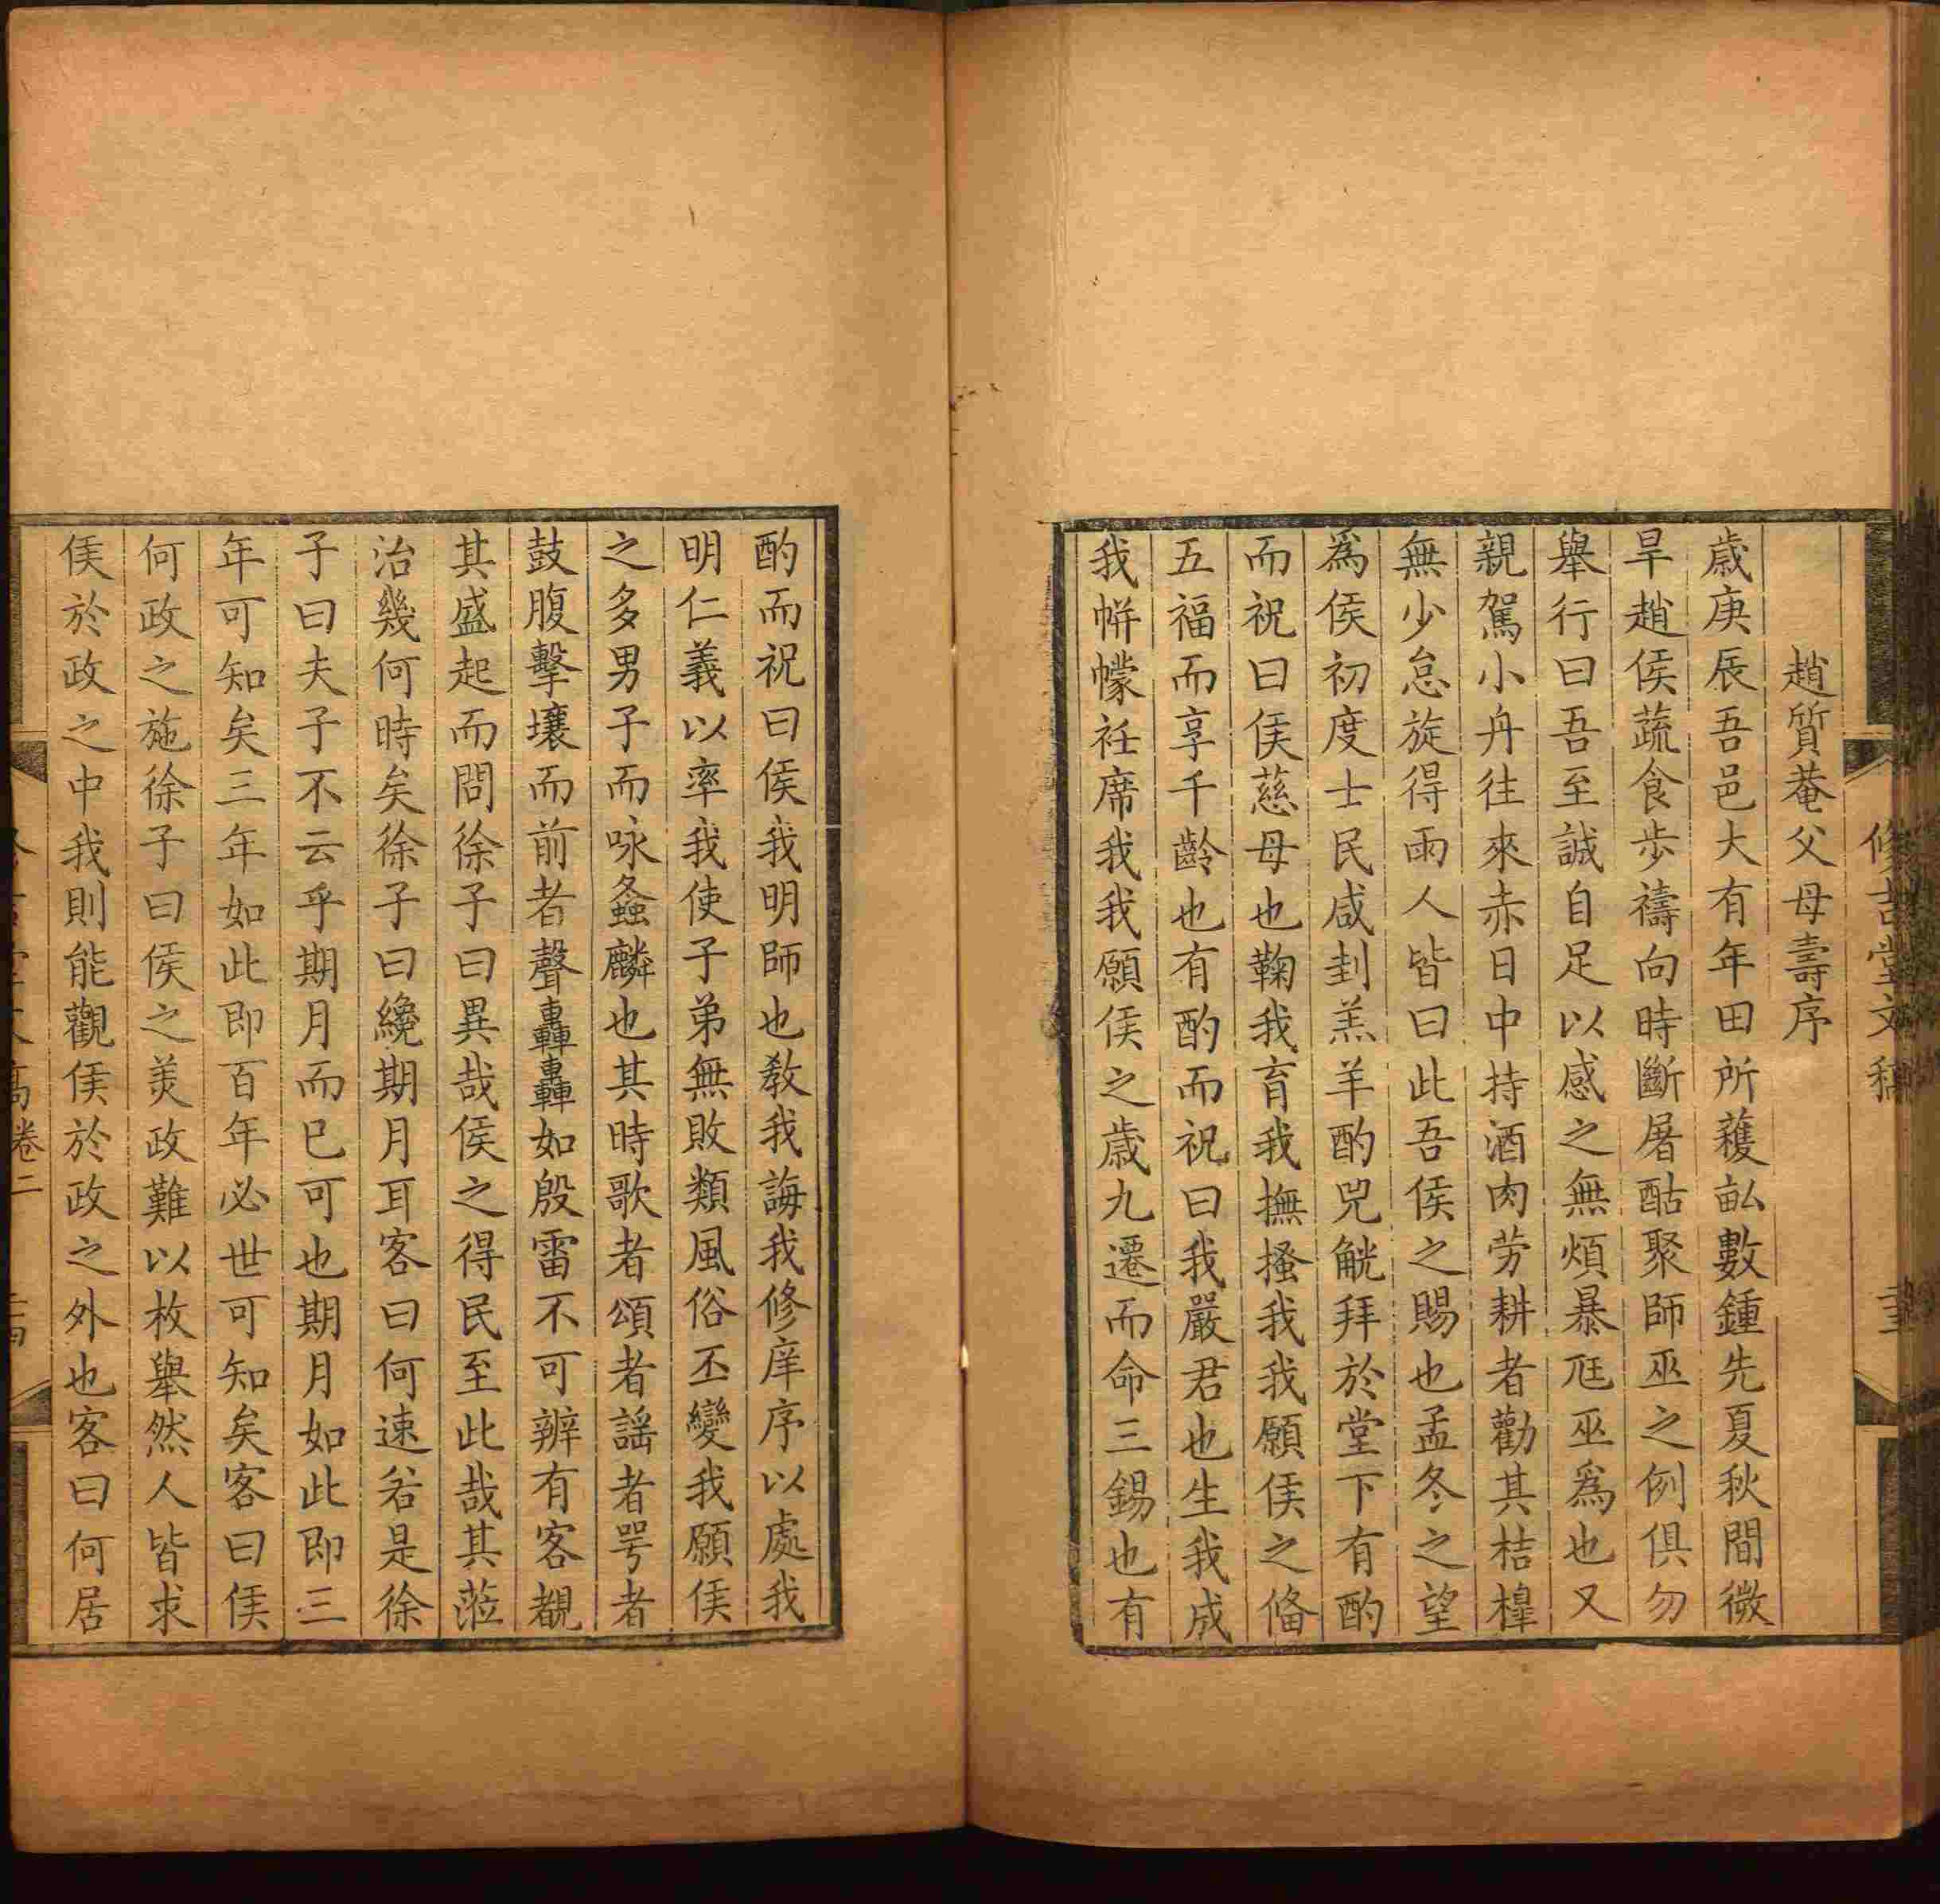 趙質菴父母壽序
歲庚辰吾邑大有年田所穫畝數鍾先夏秋間微
旱趙侯蔬食步禱向時斷屠酤聚師巫之例俱勿
舉行曰吾至誠自足以感之無煩暴尫巫爲也又
親駕小舟往來赤日中持酒肉勞耕者勸其桔槹
無少怠旋得雨人皆曰此吾侯之賜也孟冬之望
爲侯初度士民咸刲羔羊酌兕觥拜於堂下有酌
而祝曰侯慈母也鞠我育我撫搔我我願侯之備
五福而享千齡也有酌而祝曰我嚴君也生我成
我帡幪衽席我我願侯之歲九遷而命三錫也有
酌而祝曰侯我明師也教我誨我修庠序以處我
明仁義以率我使子弟無敗類風俗丕變我願侯
之多男子而咏螽麟也其時歌者頌者謡者咢者
鼓腹擊壤而前者聲轟轟如殷雷不可辨有客覩
其盛起而問徐子曰異哉侯之得民至此哉其蒞
治幾何時矣徐子曰纔期月耳客曰何速若是徐
子曰夫子不云乎期月而已可也期月如此即三
年可知矣三年如此即百年必世可知矣客曰侯
何政之施徐子曰侯之美政難以枚舉然人皆求
侯於政之中我則能觀侯於政之外也客曰何居